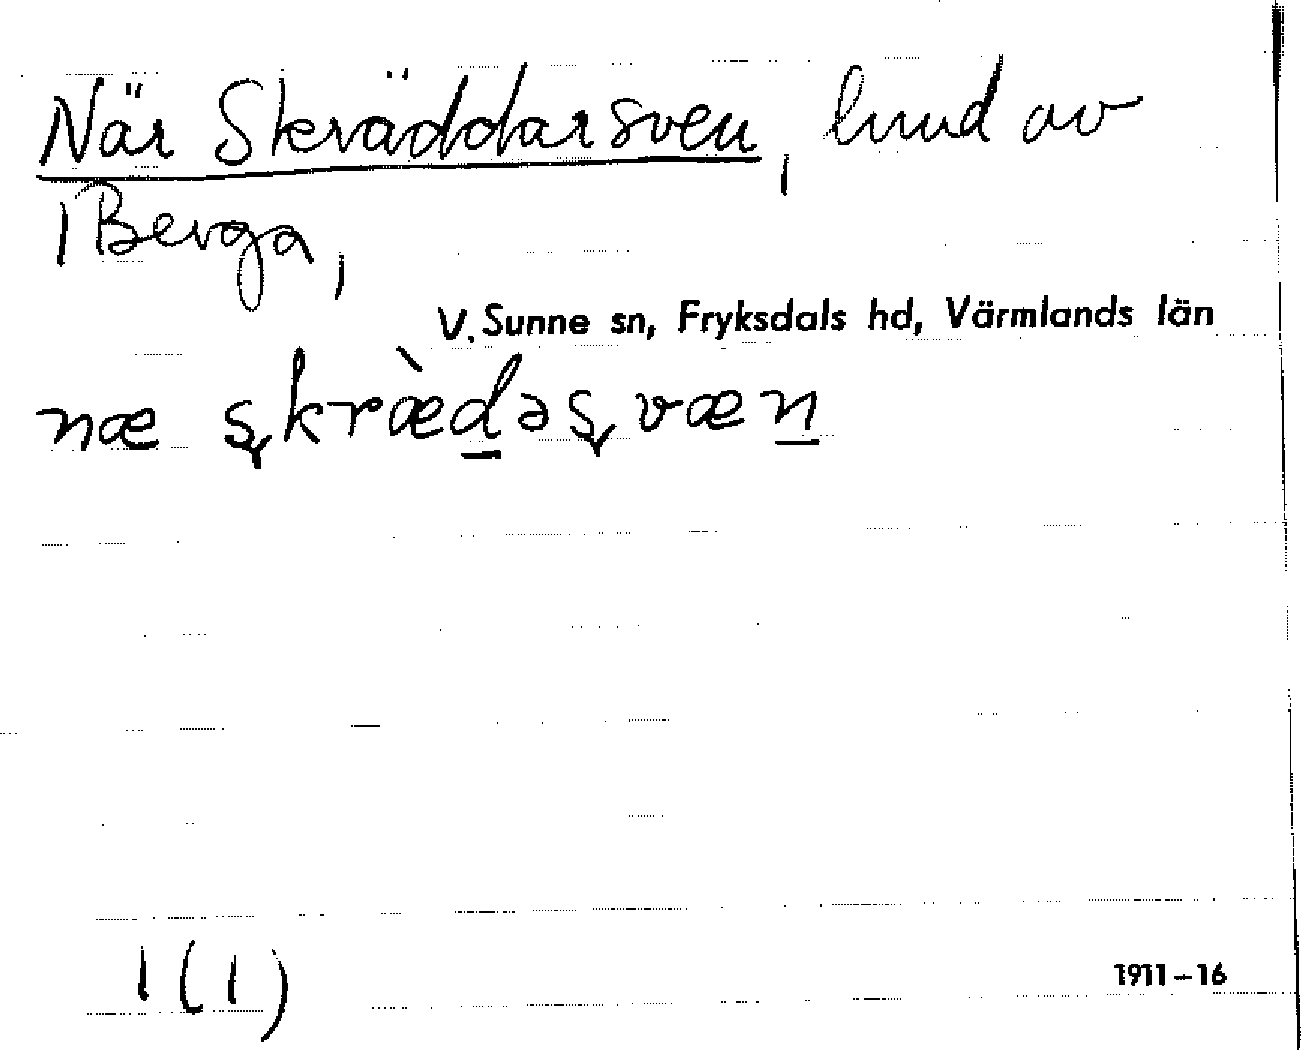 När Skräddarsven, hmd av
1 Berga,
V. Sunne sn, Fryksdals hd, Värmlands län
næ s̬kræ̀d̲əs̬væn̲
1 (1)
1911–16